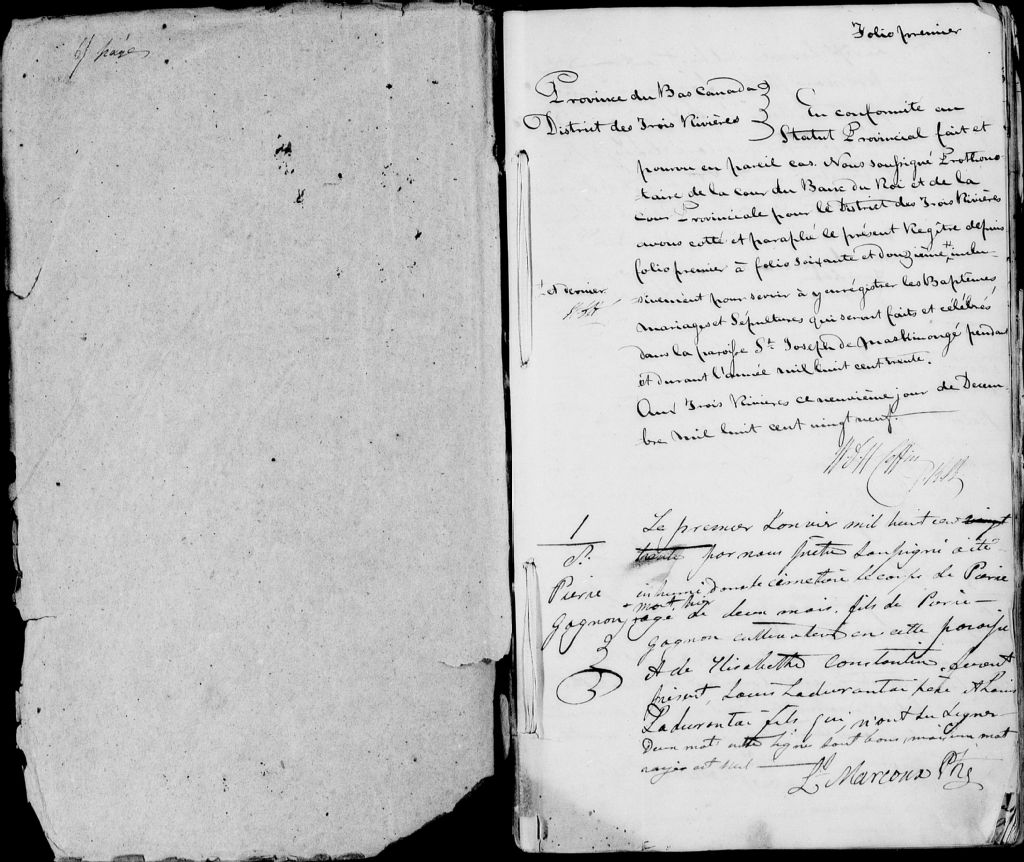 Folio premier
Province du Bas Canada
District des Trois Rivières
En conformité au
Statut Provincial fait et
pourvu en pareil cas. Nous soussigné Prothono
taire de la cour du Banc du Roi et de la
cour Provinciale pour le District des Trois Rivières
avons cotté et paraphé le présent Regître depuis
folio premier à folio soixante et douzième + inclu-
sivement pour servir à y enrégistrer les Baptêmes
+ et dernier
Mariages et Sépultures qui seront faits et célébrés
dans la paroisse St. Joseph de Maskinongé pendant
et durant l'année mil huit cent trente.
Aux Trois Rivières ce neuvième jour de Decem
bre mil huit cent vingt neuf.
Coffin
1
S.
Pierre
Gagnon
Le premier Janvier mil huit cent vingt
trente par nous prêtre Soussigné a été
inhumé dans le cimetière le corps de Pierre
mort hier
agé de deux mois, fils de Pierre
Gagnon cultivateur en cette paroisse
& de Elisabethe Constantin. furent
présent, Louis Ladurantai père & Louis
Ladurantai fils qui n'ont su Signer
Deux mots cette ligne sont bons, mais un mot
rayés est nul
Ls. Marcoux Ptre